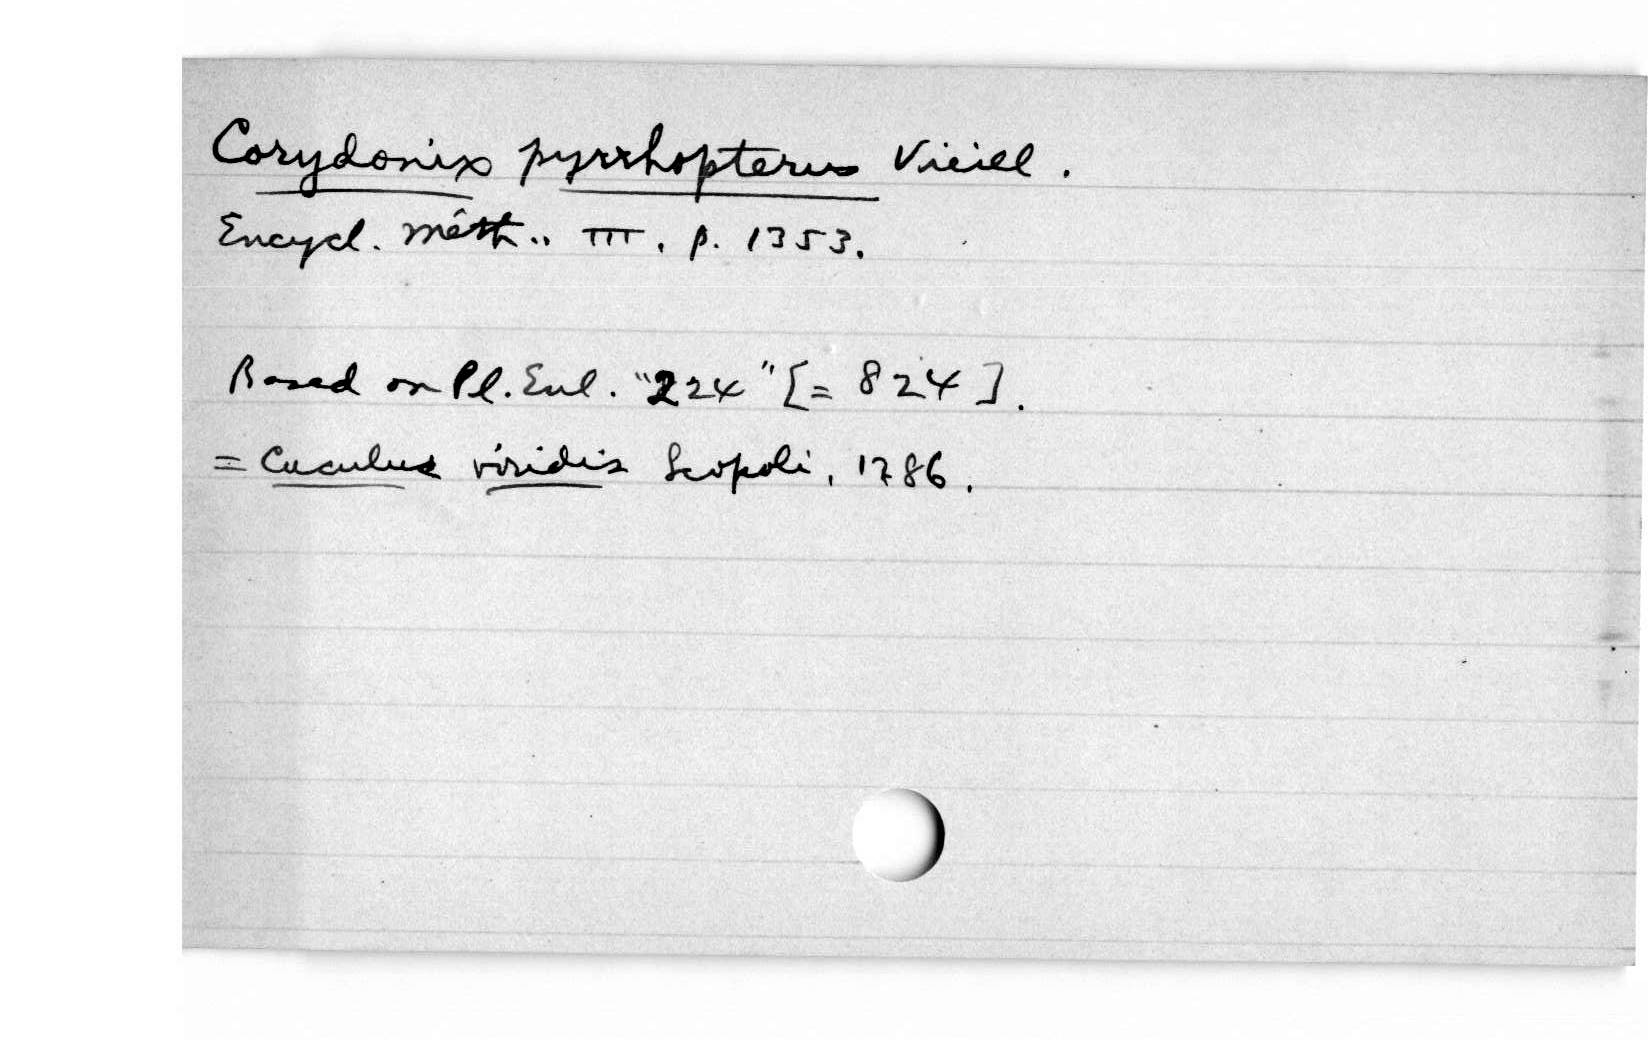 Corydonix pyrrhopterus Vieill.
Encycl. méth., III, p. 1353.
Based on Pl. Enl. "224" [= 824].
= Cuculus viridis Scopoli, 1786.